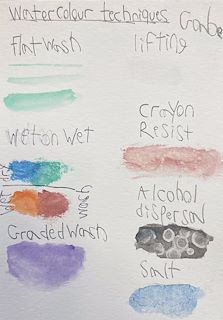 Watercolour techniques
Flat Wash
lifting
Wet on Wet
Crayon
Resist
wash
Alcohol
dispersal
Graded Wash
Salt